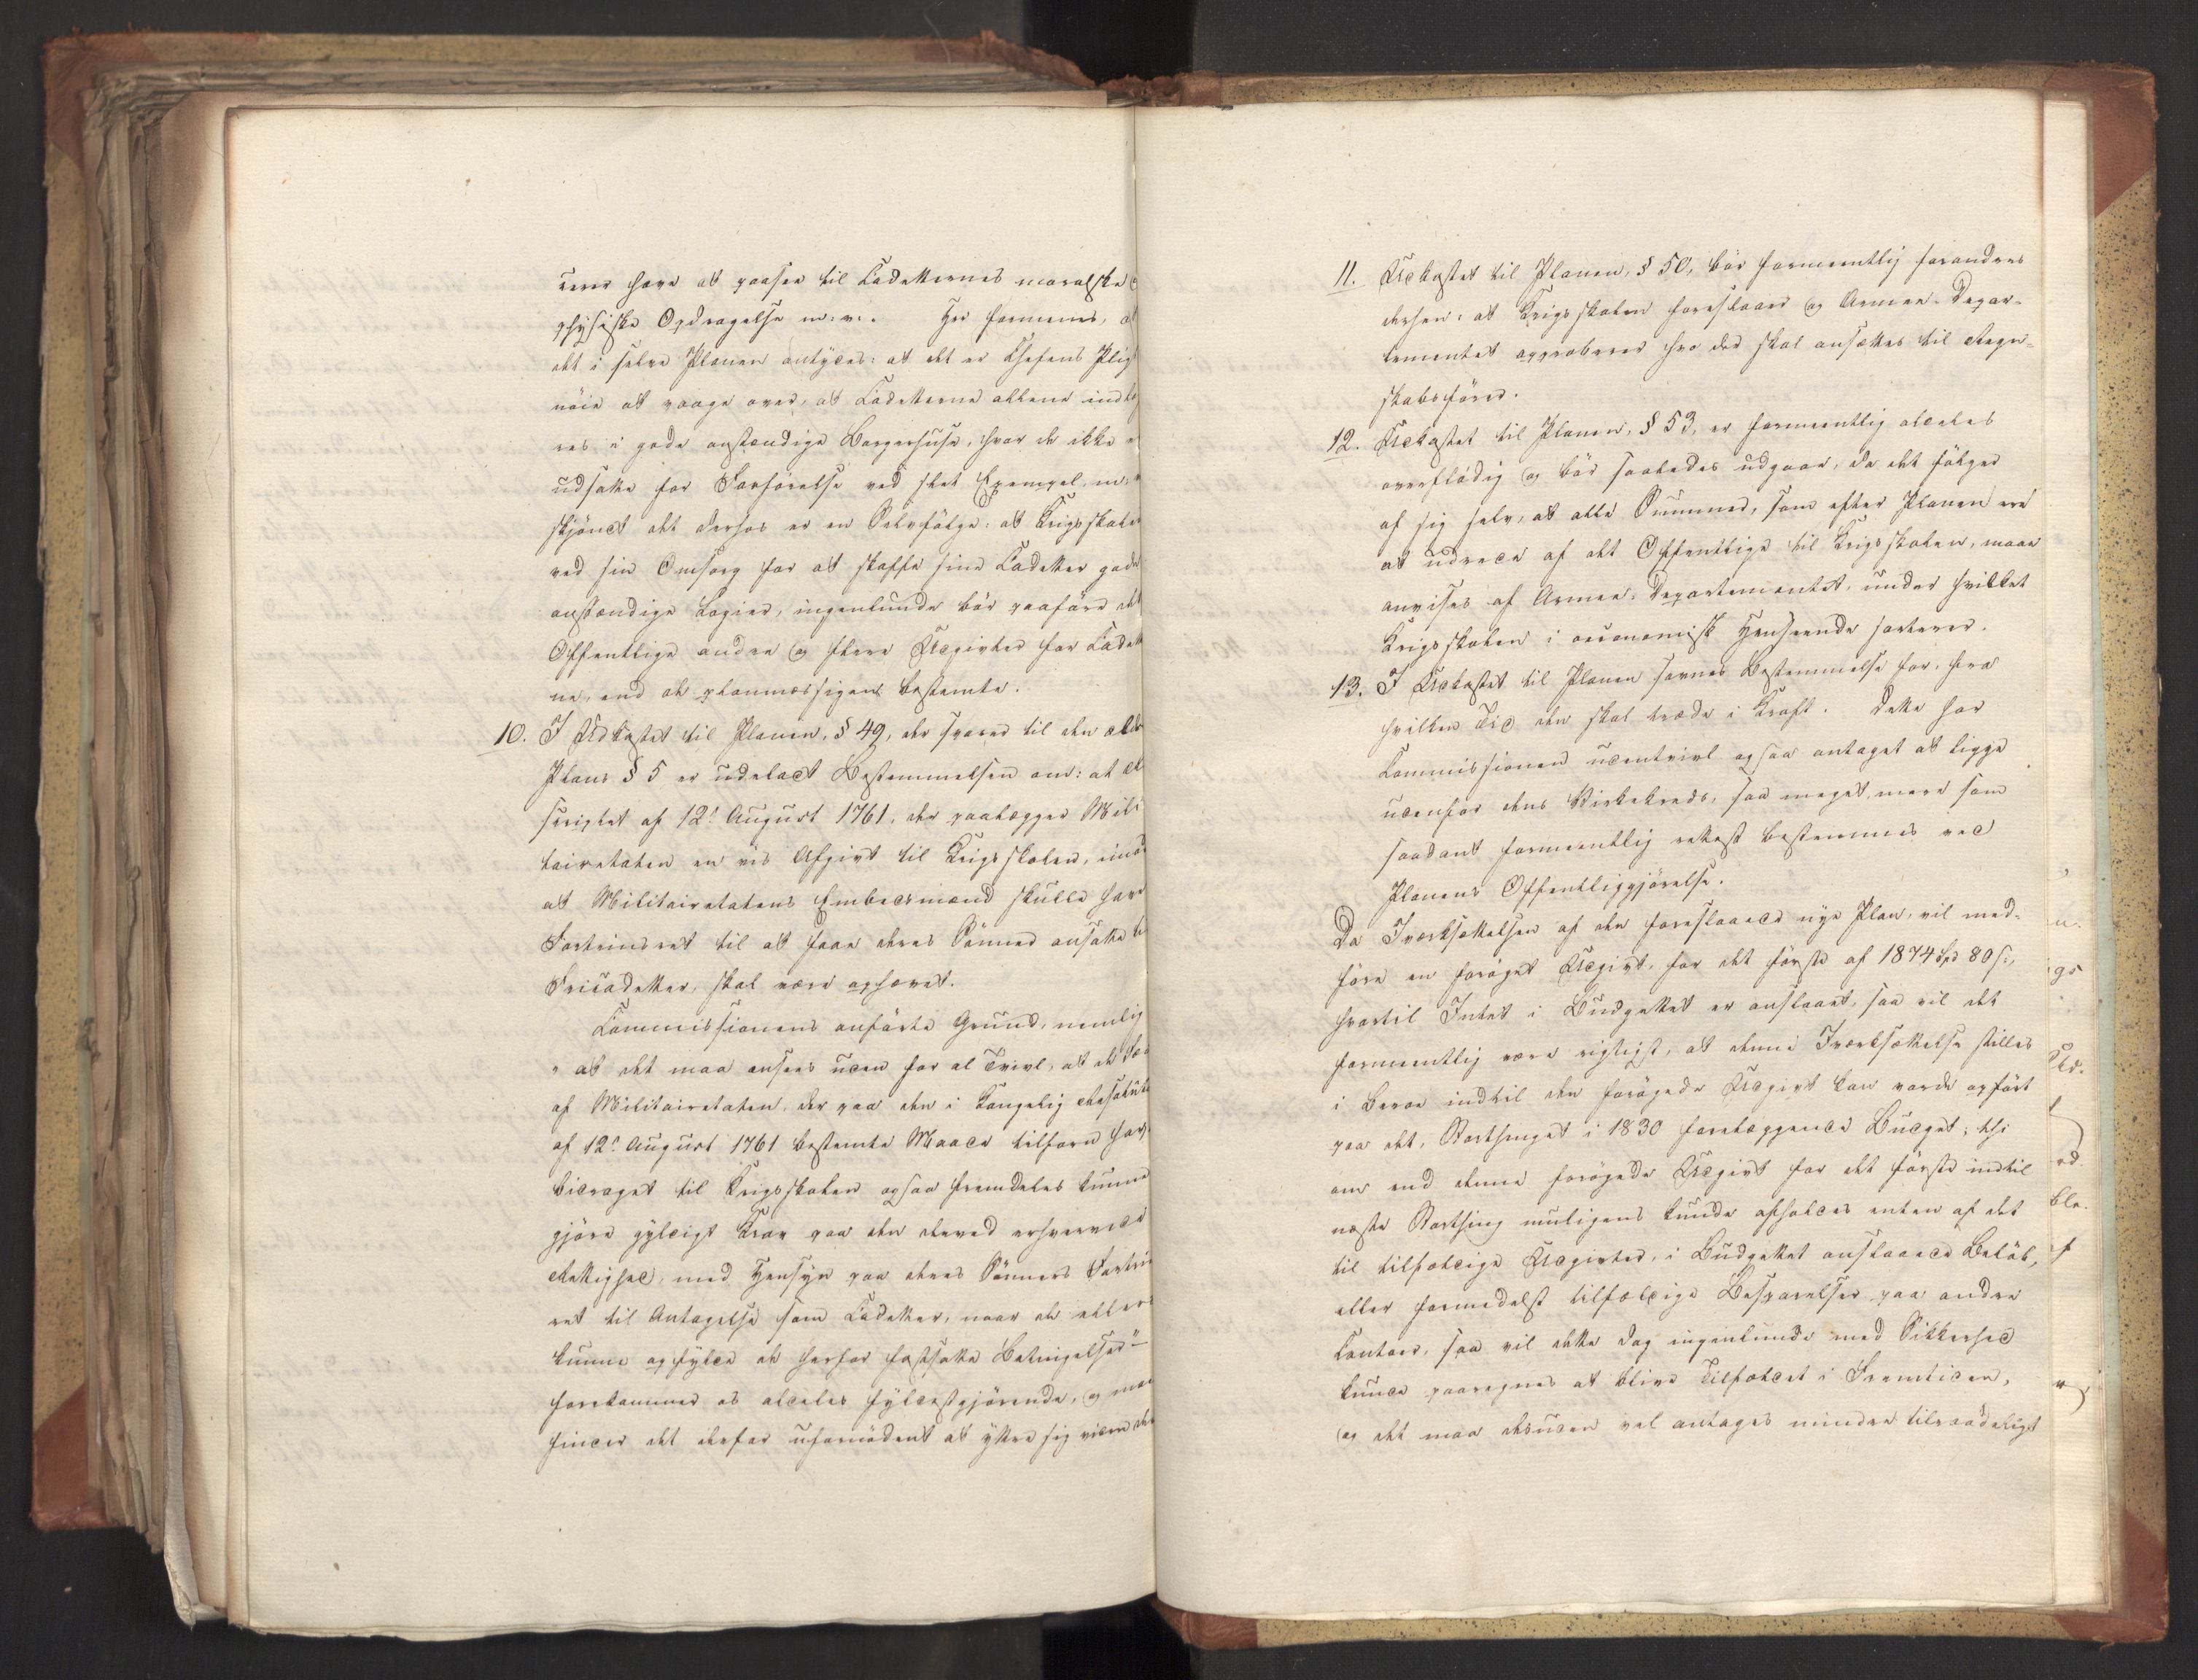 rerer have at paasee til Cadetternes moralske
physiske Opdragelse m: v:. Her formenes, at
det i selve Planen antydes: at det er Chefens Pligt
nöie at vaage over, at Cadetterne allene indlo
res i gode anstændige Borgerhuse, hvor de ikke
udsatte for Forförelse ved slet Exempel, m: v
skjöndt det derhos er en Selvfölge: at Krigsskolen
ved sin Omsorg for at skaffe sine Cadetter gode
anstændige Logier, ingenlunde bör paaföre det
Offentlige andre og flere Udgivter for Cadett
ne, end de planmæssigen bestemte.
10. I Udkastet til Planen, § 49, der svarer til den ældre
Plans § 5 er udeladt Bestemmelsen om: at
scriptet af 12te August 1761, der paalægger Mili
tairetaten en vis Afgivt til Krigsskolen, imod
at Militairetatens Embedsmænd skulle have
Fortrinsret til at faae deres Sönner ansatte
Fricadetter, skal være ophævet.
Commissionens anförte Grund, nemlig
„at det maa ansees uden for al Tvivl, at de
af Militairetaten, der paa den i Kongelig Resolution
af 12te August 1761 bestemte Maade tilforn have
bidraget til Krigsskolen ogsaa fremdeles kunne
gjöre gyldigt Krav paa den derved erhvervede
Rettighed, med Hensyn paa deres Sönners Fortrin
ret til Antagelse som Cadetter, naar de ellers
kunne opfylde de herfor fastsatte Betingelser“
forekommer os aldeles fyldestgjörende, og man
finder det derfor ufornödent at yttre sig videre
11. Udkastet til Planen, § 50, bör formeentlig forandres
derhen: at Krigsskolen foreslaaer og Armee-Depar-
tementet approberer hvo der skal ansættes til Regn-
skabsförer.
12. Udkastet til Planen, § 53, er formeentlig aldeles
overflödig og bör saaledes udgaae, da det fölger
af sig selv, at alle Summer, som efter Planen ere
at udrede af det Offentlige til Krigsskolen, maae
anvises af Armee-Departementet, under hvilket
Krigsskolen i oeconomisk Henseende sorterer.
13. I Udkastet til Planen savnes Bestemmelse for, fra
hvilken Tid den skal træde i Kraft. Dette har
Commissionen udentvivl ogsaa antaget at ligge
udenfor dens Virkekreds, saa meget mere som
saadant formeentlig rettest bestemmes ved
Planens Offentliggjörelse.
Da Iværksættelsen af den foreslaaede nye Plan, vil med-
före en foröget Udgivt, for det förste af 1874 Spd 80 s:,
hvortil Intet i Budgettet er anslaaet, saa vil det
formeentlig være rigtigst, at denne Iværksættelse stilles
i Beroe indtil den forögede Udgivt kan vorde opfört
paa det, Storthinget i 1830 forelæggende Budget; thi
om end denne forögede Udgivt for det förste indtil
næste Storthing muligens kunde afholdes enten af det
til tilfældige Udgivter, i Budgettet anslaaede Belöb,
eller formedelst tilfældige Besparelser paa andre
Contoer, saa vil dette dog ingenlunde med Sikkerhed
kunde paaregnes at blive Tilfældet i Fremtiden,
og det maa desuden vel antages mindre tilraadeligt